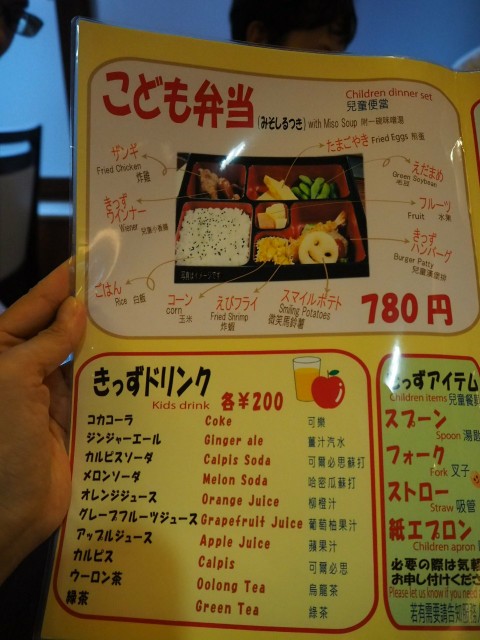 こども弁当
(みそしるつき) with Miso Soup 附一碗味噌湯
Children dinner set
兒童便當
ザンギ
Fried Chicken
炸雞
きっず
ウインナー
Wiener 兒童小香腸
ごはん
Rice 白飯
コーン
corn
玉米
えびフライ
Fried Shrimp
炸蝦
スマイルポテト
Smiling Potatoes
微笑馬鈴薯
たまごやき Fried Eggs 煎蛋
えだまめ
Green Soybean
毛豆
フルーツ
Fruit 水果
きっず
ハンバーグ
Burger Patty
兒童漢堡排
写真はイメージです
780円
きっずドリンク
Kids drink
各¥200
コカコーラ Coke 可樂
ジンジャーエール Ginger ale 薑汁汽水
カルピスソーダ Calpis Soda 可爾必思蘇打
メロンソーダ Melon Soda 哈密瓜蘇打
オレンジジュース Orange Juice 柳橙汁
グレープフルーツジュース Grapefruit Juice 葡萄柚果汁
アップルジュース Apple Juice 蘋果汁
カルピス Calpis 可爾必思
ウーロン茶 Oolong Tea 烏龍茶
緑茶 Green Tea 綠茶
きっずアイテム
Children items 兒童餐
スプーン
Spoon 湯匙
フォーク
Fork 叉子
ストロー
Straw 吸管
紙エプロン
Children apron
必要の際は気軽
お申し付けくださ
Please let us know if you need
若有需要請告知